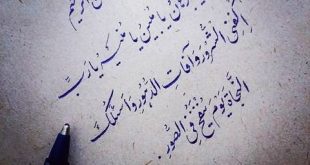 يا مُبينُ يا مُنيرُ يا رَبِّ
اكْفِنِي الشُّرُورَ وَ آفاتِ الدُّهُورِ وَ اَسْئَلُكَ
النَّجاةَ يَوْمَ يُنْفَخُ فِي الصُّورِ.